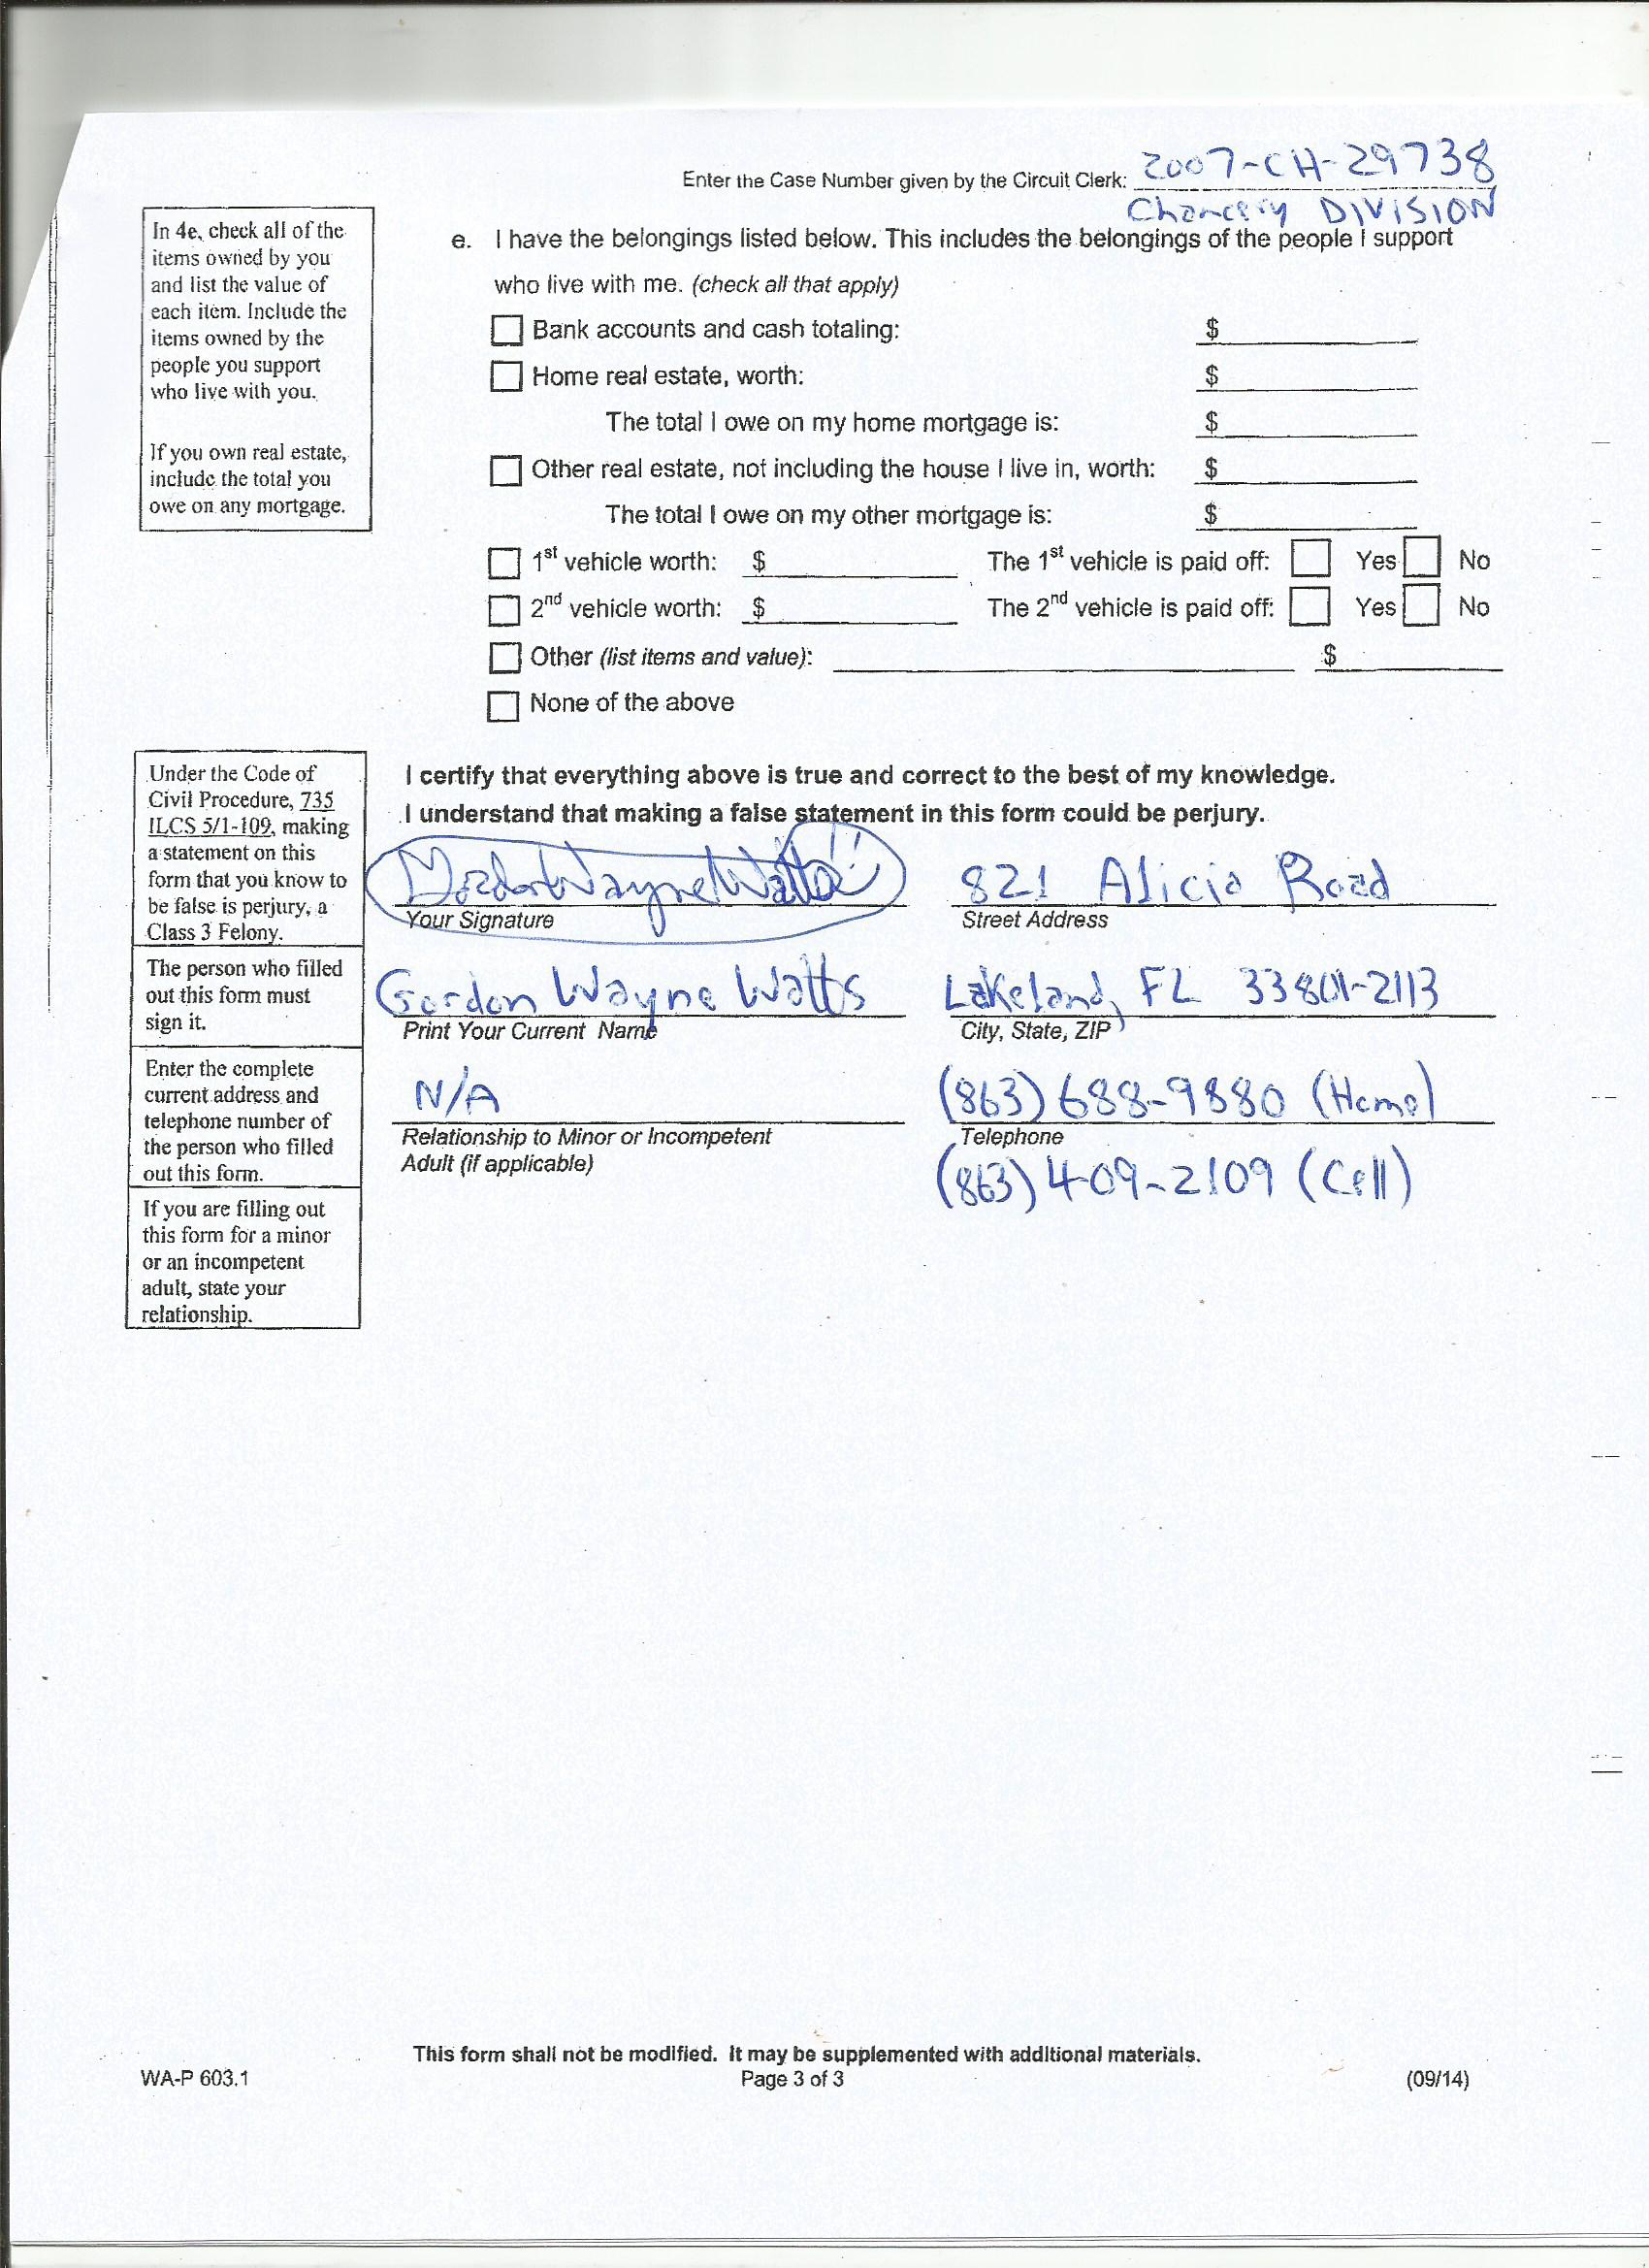 Enter the Case Number given by the Circuit Clerk: 2007-CH-29738
Chancery DIVISION
In 4e, check all of the
items owned by you
and list the value of
each item. Include the
items owned by the
people you support
who live with you.
If you own real estate,
include the total you
owe on any mortgage.
e. I have the belongings listed below. This includes the belongings of the people I support
who live with me. (check all that apply)
Bank accounts and cash totaling: $
Home real estate, worth: $
The total I owe on my home mortgage is: $
Other real estate, not including the house I live in, worth: $
The total I owe on my other mortgage is: $
1st vehicle worth: $ The 1st vehicle is paid off: Yes No
2nd vehicle worth: $ The 2nd vehicle is paid off: Yes No
Other (list items and value): $
None of the above
Under the Code of
Civil Procedure, 735
ILCS 5/1-109, making
a statement on this
form that you know to
be false is perjury, a
Class 3 Felony.
The person who filled
out this form must
sign it.
Enter the complete
current address and
telephone number of
the person who filled
out this form.
If you are filling out
this form for a minor
or an incompetent
adult, state your
relationship.
I certify that everything above is true and correct to the best of my knowledge.
I understand that making a false statement in this form could be perjury.
Gordon Wayne Watts 821 Alicia Road
Your Signature Street Address
Gordon Wayne Watts Lakeland, FL 33801-2113
Print Your Current Name City, State, ZIP
N/A (863) 688-9880 (Home)
Relationship to Minor or Incompetent Telephone
Adult (if applicable) (863) 409-2109 (Cell)
This form shall not be modified. It may be supplemented with additional materials.
WA-P 603.1 Page 3 of 3 (09/14)